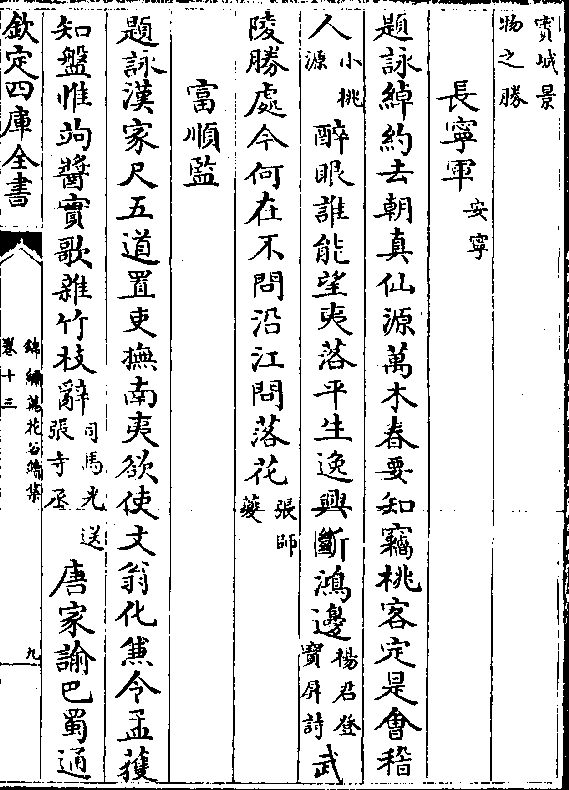 寳城景
物之勝
長寧軍 安寧
題詠綽約去朝真仙源萬木春要知竊桃客定是㑹稽
人 小桃源 醉眼誰能望夷落平生逸興斷鴻邊 楊君登寳屏詩 武
陵勝處今何在不問沿江問落花 張師夔
富順監
題詠漢家尺五道置吏撫南夷欲使文翁化兼令孟獲
知盤惟竘醬實歌雜竹枝辭 司馬光送張寺丞 唐家諭巴蜀通
欽定四庫全書
錦繡萬花谷續集
卷十三
九